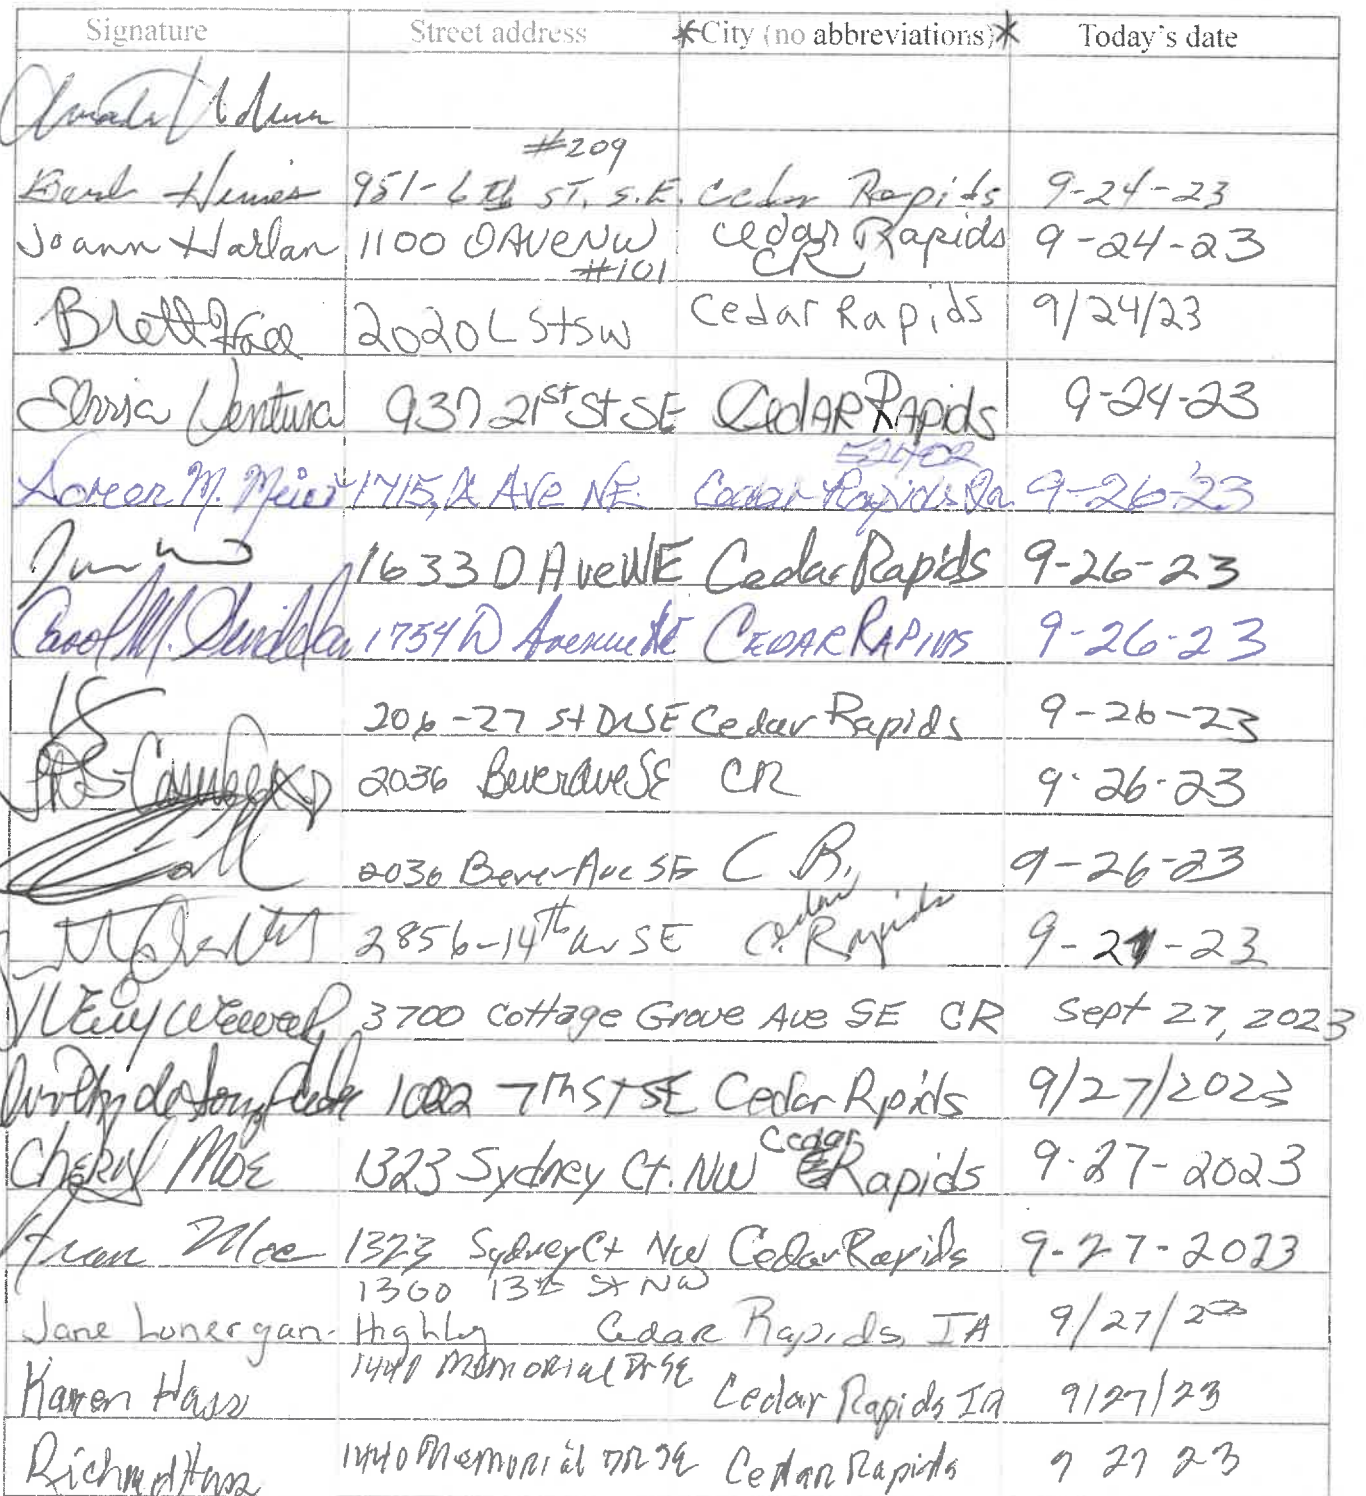 Signature Street address *City (no abbreviations)* Today's date
#209
951-6th ST. S.E. Cedar Rapids 9-24-23
Joann Harlan 1100 O AVE NW Cedar Rapids 9-24-23
#101 CR
Brett 2020 L St SW Cedar Rapids 9/24/23
Ventura 937 21st St SE Cedar Rapids 9-24-23
52402
M. Meier 1715, A Ave NE Cedar Rapids Ia 9-26-23
1633 D Ave NE Cedar Rapids 9-26-23
Carol M. 1754 D Avenue NE CEDAR RAPIDS 9-26-23
206-27 St Dr SE Cedar Rapids 9-26-23
2036 Bever Ave SE CR 9-26-23
2036 Bever Ave SE C R, 9-26-23
2856-14th Av SE C. Rapids 9-27-23
Cedar Rapids
3700 Cottage Grove Ave SE CR Sept 27, 2023
7th ST SE Cedar Rpids 9/27/2023
Cheryl Moe 1323 Sydney Ct. NW Cedar Rapids 9-27-2023
Fran Moe 1323 Sydney Ct NW Cedar Rapids 9-27-2023
1360 13th St NW
Jane Lonergan- Highly Cedar Rapids, IA 9/27/23
1440 Memorial Dr SE
Karen Hass Cedar Rapids IA 9/27/23
Richard Hass 1440 Memorial DR SE Cedar Rapids 9 27 23